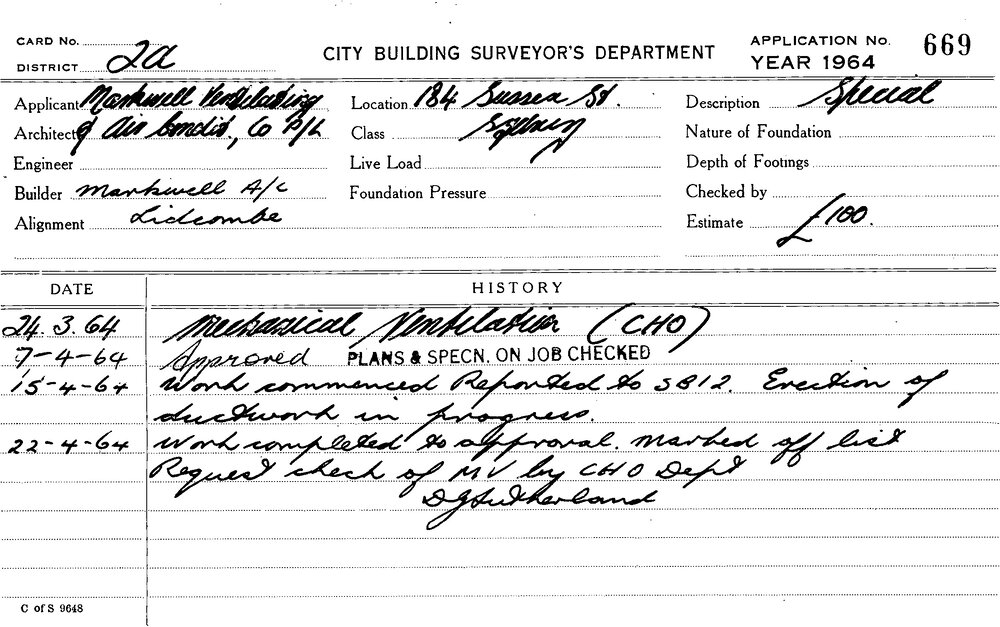 CARD No.
DISTRICT 2a
CITY BUILDING SURVEYOR'S DEPARTMENT
APPLICATION No. 669
YEAR 1964
Applicant Markwell Ventilating
Architect & Air Condit, Co P/L
Engineer
Builder Markwell A/c
Alignment Lidcombe
Location 184 Sussex St.
Class Sydney
Live Load
Foundation Pressure
Description Special
Nature of Foundation
Depth of Footings
Checked by
Estimate £100.
DATE HISTORY
24.3.64 Mechanical Ventilation (CHO)
7-4-64 Approved PLANS & SPECN. ON JOB CHECKED
15-4-64 Work commenced Reported to SB12. Erection of
ductwork in progress.
22-4-64 Work completed to approval. Marked off list
Request check of MV by CHO Dept
DGSutherland
C of S 9648